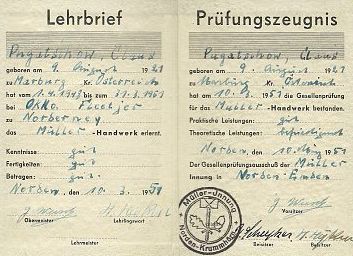 Lehrbrief
Pugatschow Claus
geboren am 9. August 1921
zu Marburg Kr. Österreich
hat vom 1.4.1948 bis 31.3.1951
bei Okko
zu Norderney
das Müller -Handwerk erlernt.
Kenntnisse: gut
Fertigkeiten: gut
Betragen: gut
Norden, den 10. 3. 1951
Obermeister Lehrlingswart
Lehrmeister
Prüfungszeugnis
Pugatschow Claus
geboren am 9. August 1921
zu Marburg Kr. Österreich
hat am 10. 1951 die Gesellenprüfung
für das Müller -Handwerk bestanden.
Praktische Leistungen: gut
Theoretische Leistungen: befriedigend
Norden, den 10. März 1951
Der Gesellenprüfungsausschuß der Müller
Innung in Norden-Emden
Vorsitzer
Beisitzer Beisitzer
Müller-Innung
Norden-Krummhörn